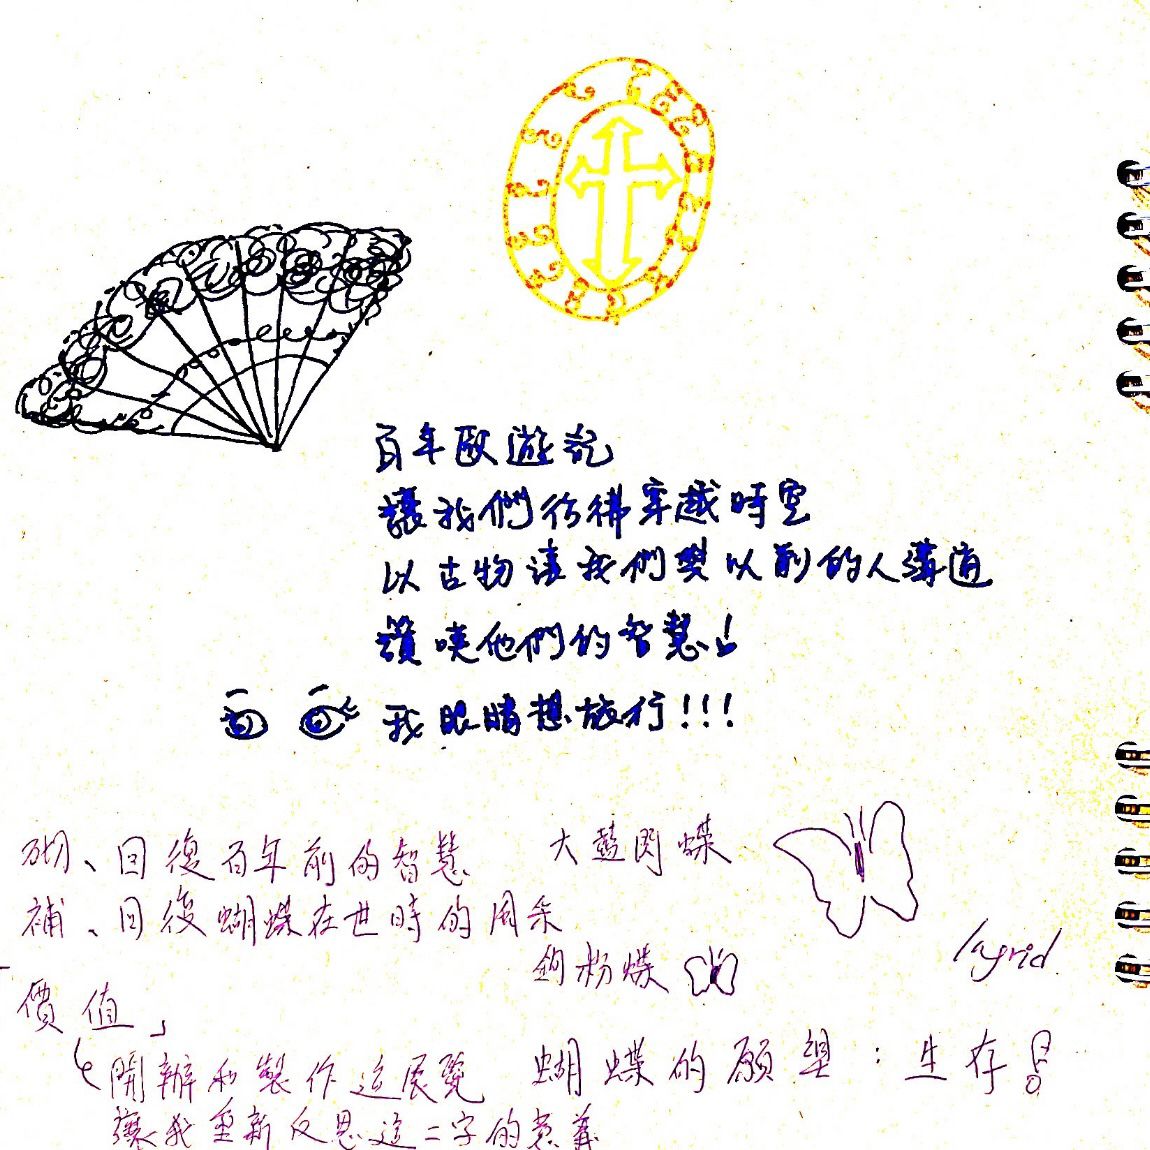 百年歐遊記
讓我們彷彿穿越時空
以古物讓我們與以前的人溝通
讚嘆他們的智慧！
我眼睛想旅行!!!
砌、回復百年前的智慧
大藍閃蝶
補、回復蝴蝶在世時的風采
鉤粉蝶
Ingrid
價值」
開辦和製作這展覽
蝴蝶的願望：生存！
讓我重新反思這二字的意義